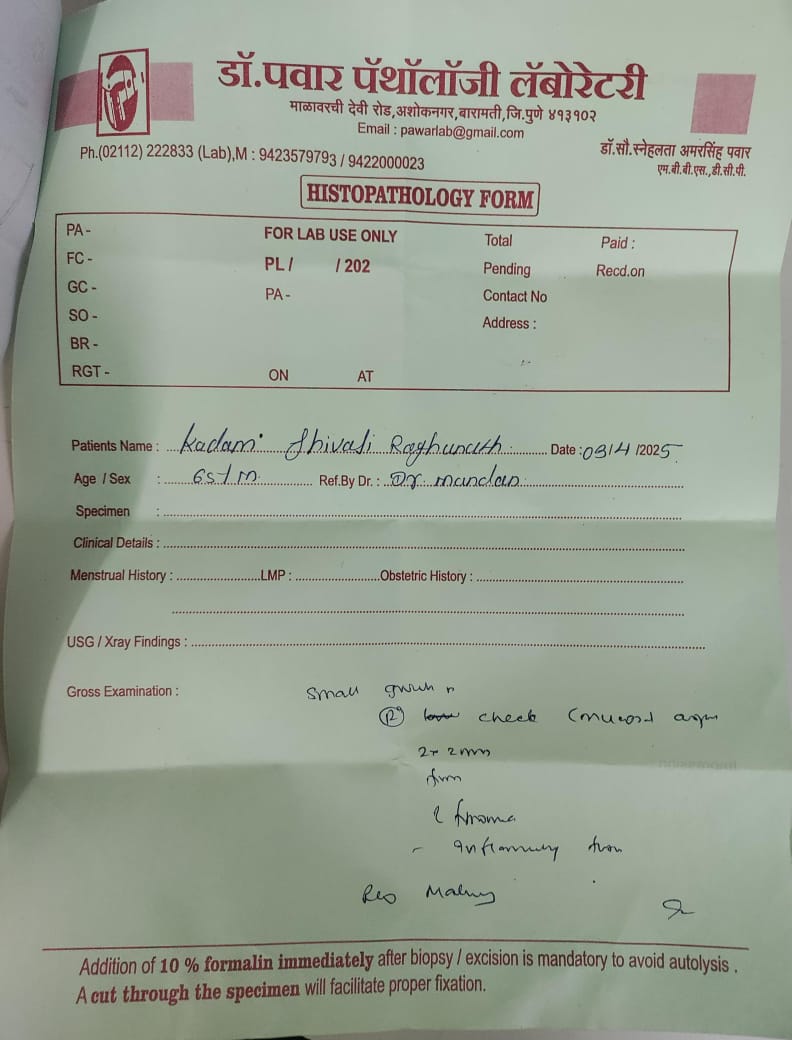 डॉ.पवार पॅथॉलॉजी लॅबोरेटरी
माळावरची देवी रोड,अशोकनगर,बारामती,जि.पुणे ४१३१०२
Email : pawarlab@gmail.com
Ph.(02112) 222833 (Lab),M : 9423579793 / 9422000023
डॉ.सौ.स्नेहलता अमरसिंह पवार
एम.बी.बी.एस.,डी.सी.पी.
HISTOPATHOLOGY FORM
PA - FOR LAB USE ONLY Total Paid :
FC - PL / / 202 Pending Recd.on
GC - PA - Contact No
SO - Address :
BR -
RGT - ON AT
Patients Name : Kadam Shivaji Raghunath Date : 09/4/2025
Age / Sex : 65/M Ref.By Dr. : Dr.
Specimen :
Clinical Details :
Menstrual History : LMP : Obstetric History :
USG / Xray Findings :
Gross Examination : Small
(R) check
2x2mm
Addition of 10 % formalin immediately after biopsy / excision is mandatory to avoid autolysis .
A cut through the specimen will facilitate proper fixation.